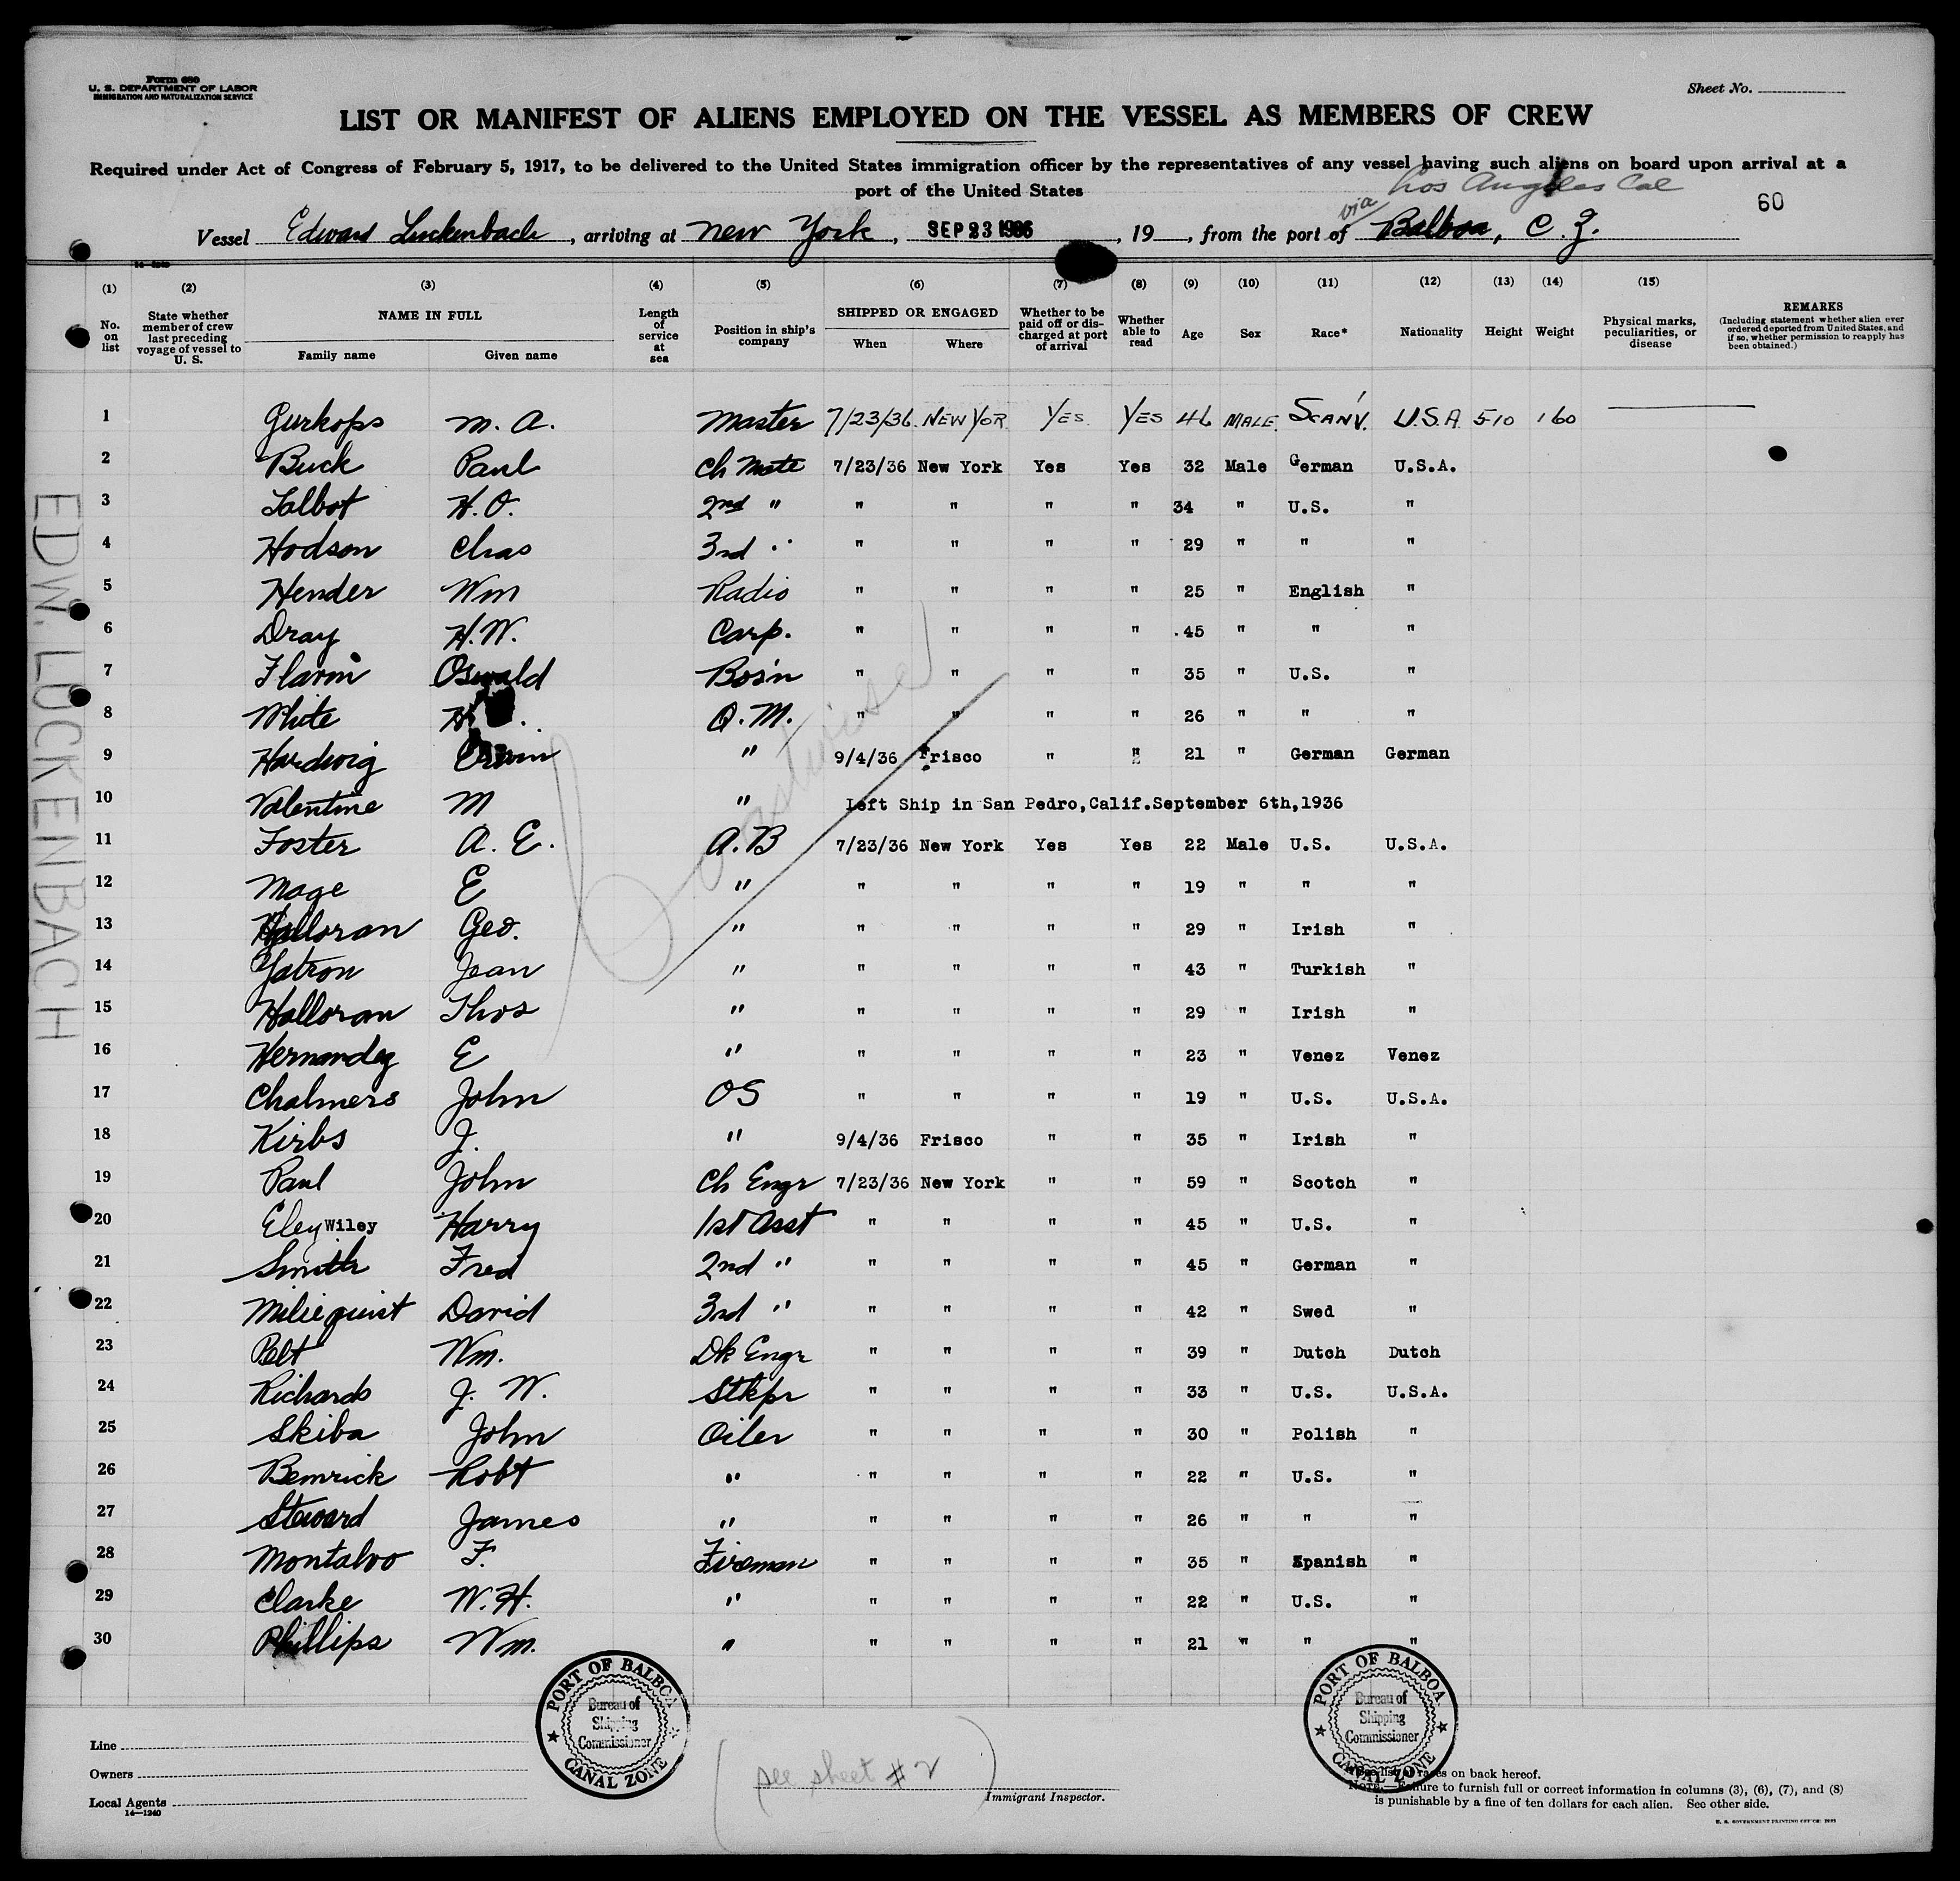 Form 680
U. S. DEPARTMENT OF LABOR
IMMIGRATION AND NATURALIZATION SERVICE
Sheet No.
LIST OR MANIFEST OF ALIENS EMPLOYED ON THE VESSEL AS MEMBERS OF CREW
Required under Act of Congress of February 5, 1917, to be delivered to the United States immigration officer by the representatives of any vessel having such aliens on board upon arrival at a
port of the United States
Los Angeles Cal
60
Vessel Edward Luckenbach, arriving at New York, SEP 23 1936, 19, from the port of via Balboa, C. Z.
(1) (2) (3) (4) (5) (6) (7) (8) (9) (10) (11) (12) (13) (14) (15)
No. on list State whether member of crew last preceding voyage of vessel to U. S. NAME IN FULL Family name Given name Length of service at sea Position in ship's company SHIPPED OR ENGAGED When Where Whether to be paid off or discharged at port of arrival Whether able to read Age Sex Race* Nationality Height Weight Physical marks, peculiarities, or disease REMARKS (Including statement whether alien ever ordered deported from United States, and if so, whether permission to reapply has been obtained.)
1 Gurkops M. A. Master 7/23/36 NEW YOR YES YES 46 MALE SCAN'V. U.S.A 510 160
2 Buck Paul Ch Mate 7/23/36 New York Yes Yes 32 Male German U.S.A.
3 Talbot H. O. 2nd " " " " " 34 " U.S. "
4 Hodson Chas 3rd " " " " " 29 " " "
5 Hender Wm Radio " " " " 25 " English "
6 Dray H. W. Carp. " " " " 45 " " "
7 Flavin Oswald Bos'n " " " " 35 " U.S. "
8 White H Q. M. " " " " 26 " " "
9 Hardwig Erwin " 9/4/36 Frisco " " 21 " German German
10 Valentine M " Left Ship in San Pedro, Calif. September 6th, 1936
11 Foster A. E. A. B 7/23/36 New York Yes Yes 22 Male U.S. U.S.A.
12 Mage E " " " " " 19 " " "
13 Halloran Geo. " " " " " 29 " Irish "
14 Yatron Jean " " " " " 43 " Turkish "
15 Halloran Thos " " " " " 29 " Irish "
16 Hernandez E " " " " " 23 " Venez Venez
17 Chalmers John OS " " " " 19 " U.S. U.S.A.
18 Kirbs J. " 9/4/36 Frisco " " 35 " Irish "
19 Paul John Ch Engr 7/23/36 New York " " 59 " Scotch "
20 Eley Wiley Harry 1st Asst " " " " 45 " U.S. "
21 Smith Fred 2nd " " " " " 45 " German "
22 Miliequist David 3rd " " " " " 42 " Swed "
23 Pelt Wm. Dk Engr " " " " 39 " Dutch Dutch
24 Richards J. W. Stkpr " " " " 33 " U.S. U.S.A.
25 Skiba John Oiler " " " " 30 " Polish "
26 Bemrick Robt " " " " " 22 " U.S. "
27 Steward James " " " " " 26 " " "
28 Montalvo F. Fireman " " " " 35 " Spanish "
29 Clarke W. H. " " " " " 22 " U.S. "
30 Phillips Wm. " " " " " 21 " " "
Coastwise
EDW. LUCKENBACH
PORT OF BALBOA
Bureau of
Shipping
Commissioner
CANAL ZONE
PORT OF BALBOA
Bureau of
Shipping
Commissioner
CANAL ZONE
Line
Owners
Local Agents
14—1240
(see sheet # 2)
Immigrant Inspector.
*See list of races on back hereof.
NOTE.—Failure to furnish full or correct information in columns (3), (6), (7), and (8)
is punishable by a fine of ten dollars for each alien. See other side.